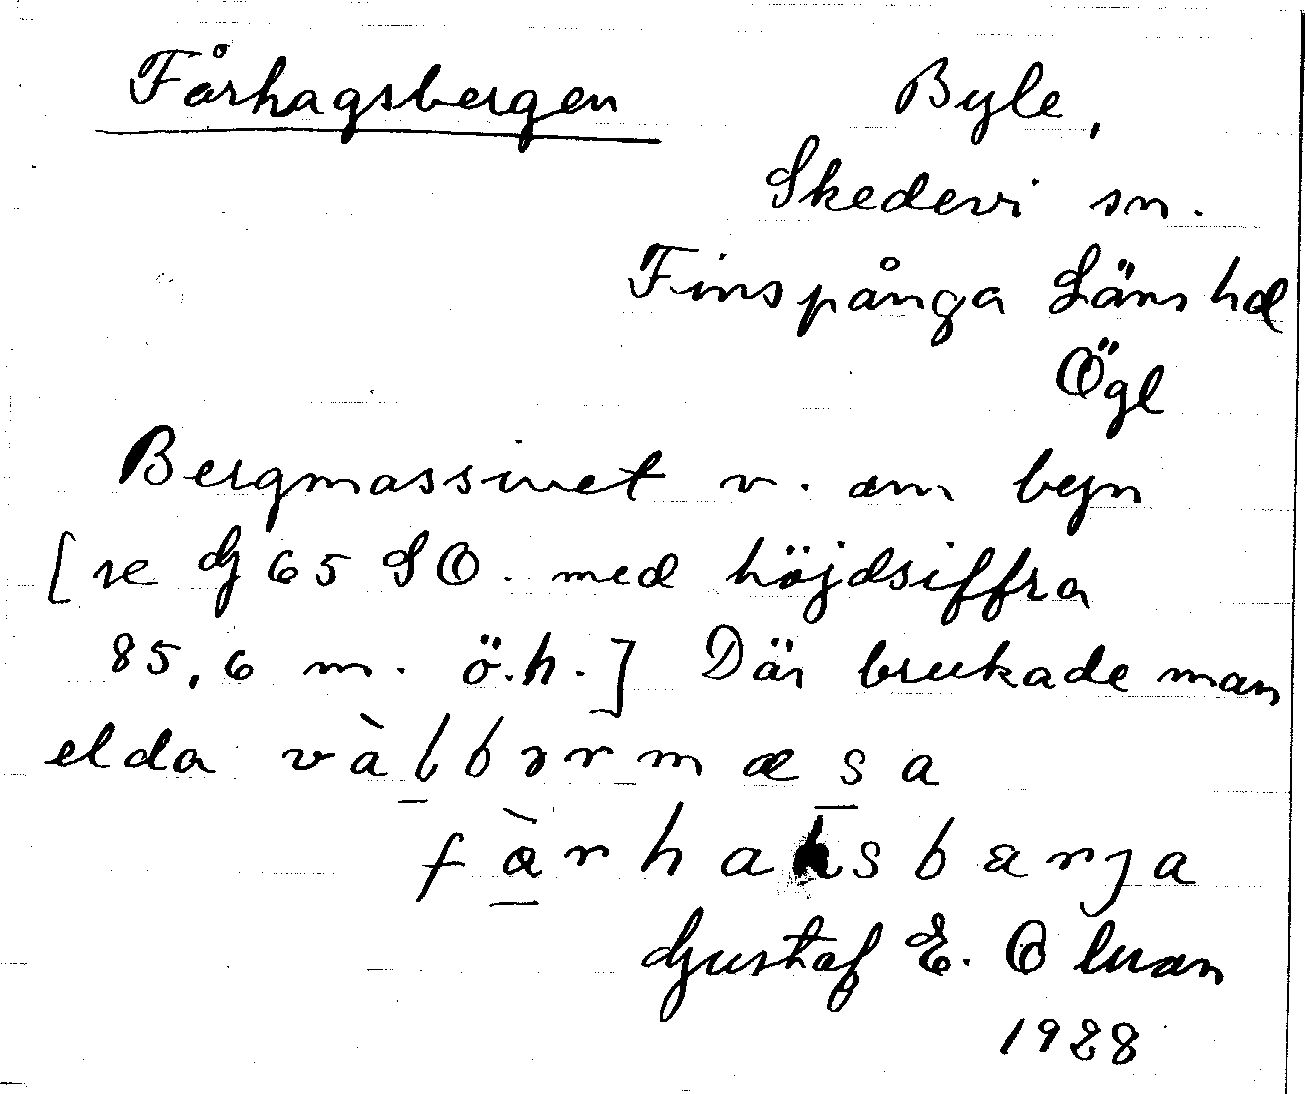 Fårhagsbergen
Byle,
Skedevi sn.
Finspånga Läns hd
Ögl
Bergmassivet v. om byn
[se G 65 SO. med höjdsiffra
85,6 m. ö.h.] Där brukade man
elda vàlbərmæsa
fàrhaksbærja
Gustaf E. Olsson
1928